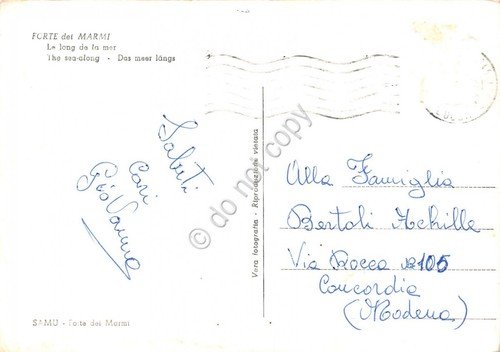 FORTE dei MARMI
Le long de la mer
The sea-along - Das meer längs
Saluti
Cari
Giovanna
© do not copy
Vera fotografia - Riproduzione vietata
Alla Famiglia
Bertoli Achille
Via Rocca №105
Concordia
(Modena)
SAMU - Forte dei Marmi